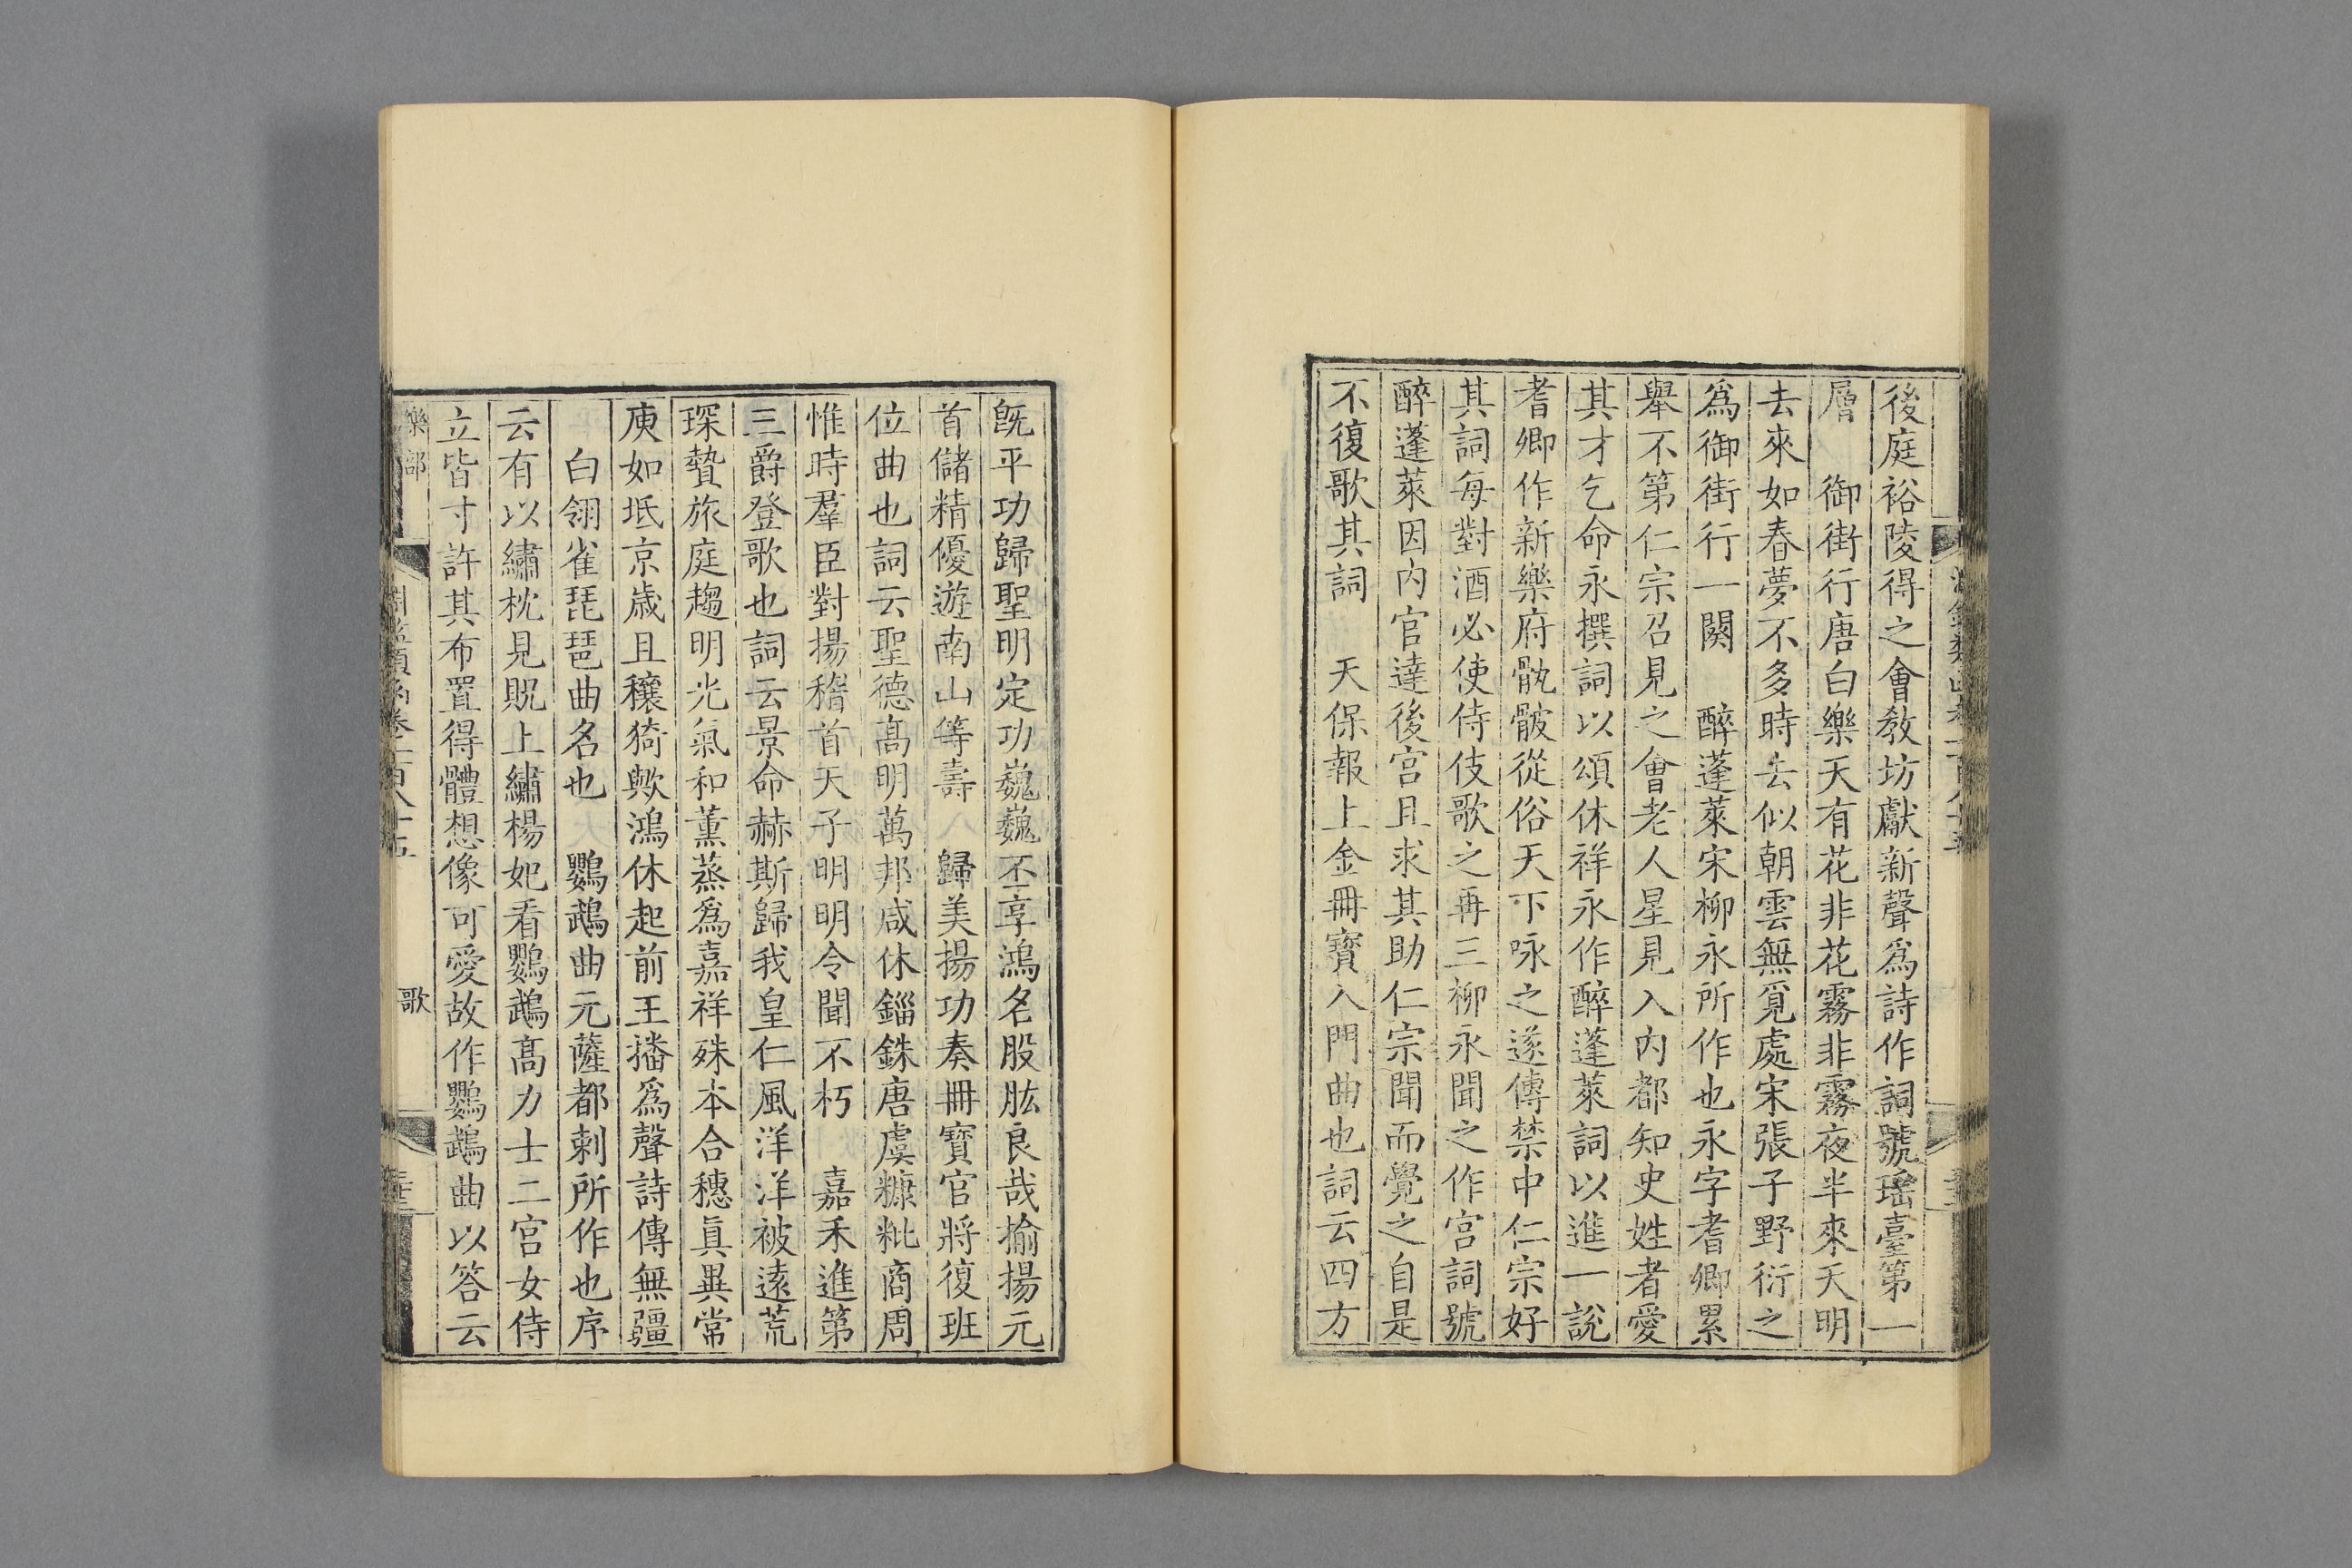 後庭裕陵得之會敎坊獻新聲爲詩作詞號瑤臺第一
層　御街行唐白樂天有花非花霧非霧夜半來天明
去來如春夢不多時去似朝雲無覓處宋張子野衍之
爲御街行一闋　醉蓬萊宋柳永所作也永字耆卿累
舉不第仁宗召見之會老人星見入內都知史姓者愛
其才乞命永撰詞以頌休祥永作醉蓬萊詞以進一說
耆卿作新樂府骫骳從俗天下咏之遂傳禁中仁宗好
其詞每對酒必使侍伎歌之再三柳永聞之作宮詞號
醉蓬萊因內官達後宮且求其助仁宗聞而覺之自是
不復歌其詞　天保報上金冊寶入門曲也詞云四方
旣平功歸聖明定功巍巍丕享鴻名股肱良哉揄揚元
首儲精優遊南山等壽　歸美揚功奏冊寶官將復班
位曲也詞云聖德高明萬邦咸休錙銖唐虞糠粃商周
惟時羣臣對揚稽首天子明明令聞不朽　嘉禾進第
三爵登歌也詞云景命赫斯歸我皇仁風洋洋被遠荒
琛贄旅庭趨明光氣和薰蒸爲嘉祥殊本合穗眞異常
庾如坻京歲且穰猗歟鴻休起前王播爲聲詩傳無疆
白翎雀琵琶曲名也　鸚鵡曲元薩都剌所作也序
云有以繡枕見貺上繡楊妃看鸚鵡高力士二宮女侍
立皆寸許其布置得體想像可愛故作鸚鵡曲以答云
樂部
淵鑑類函卷一百八十五
歌